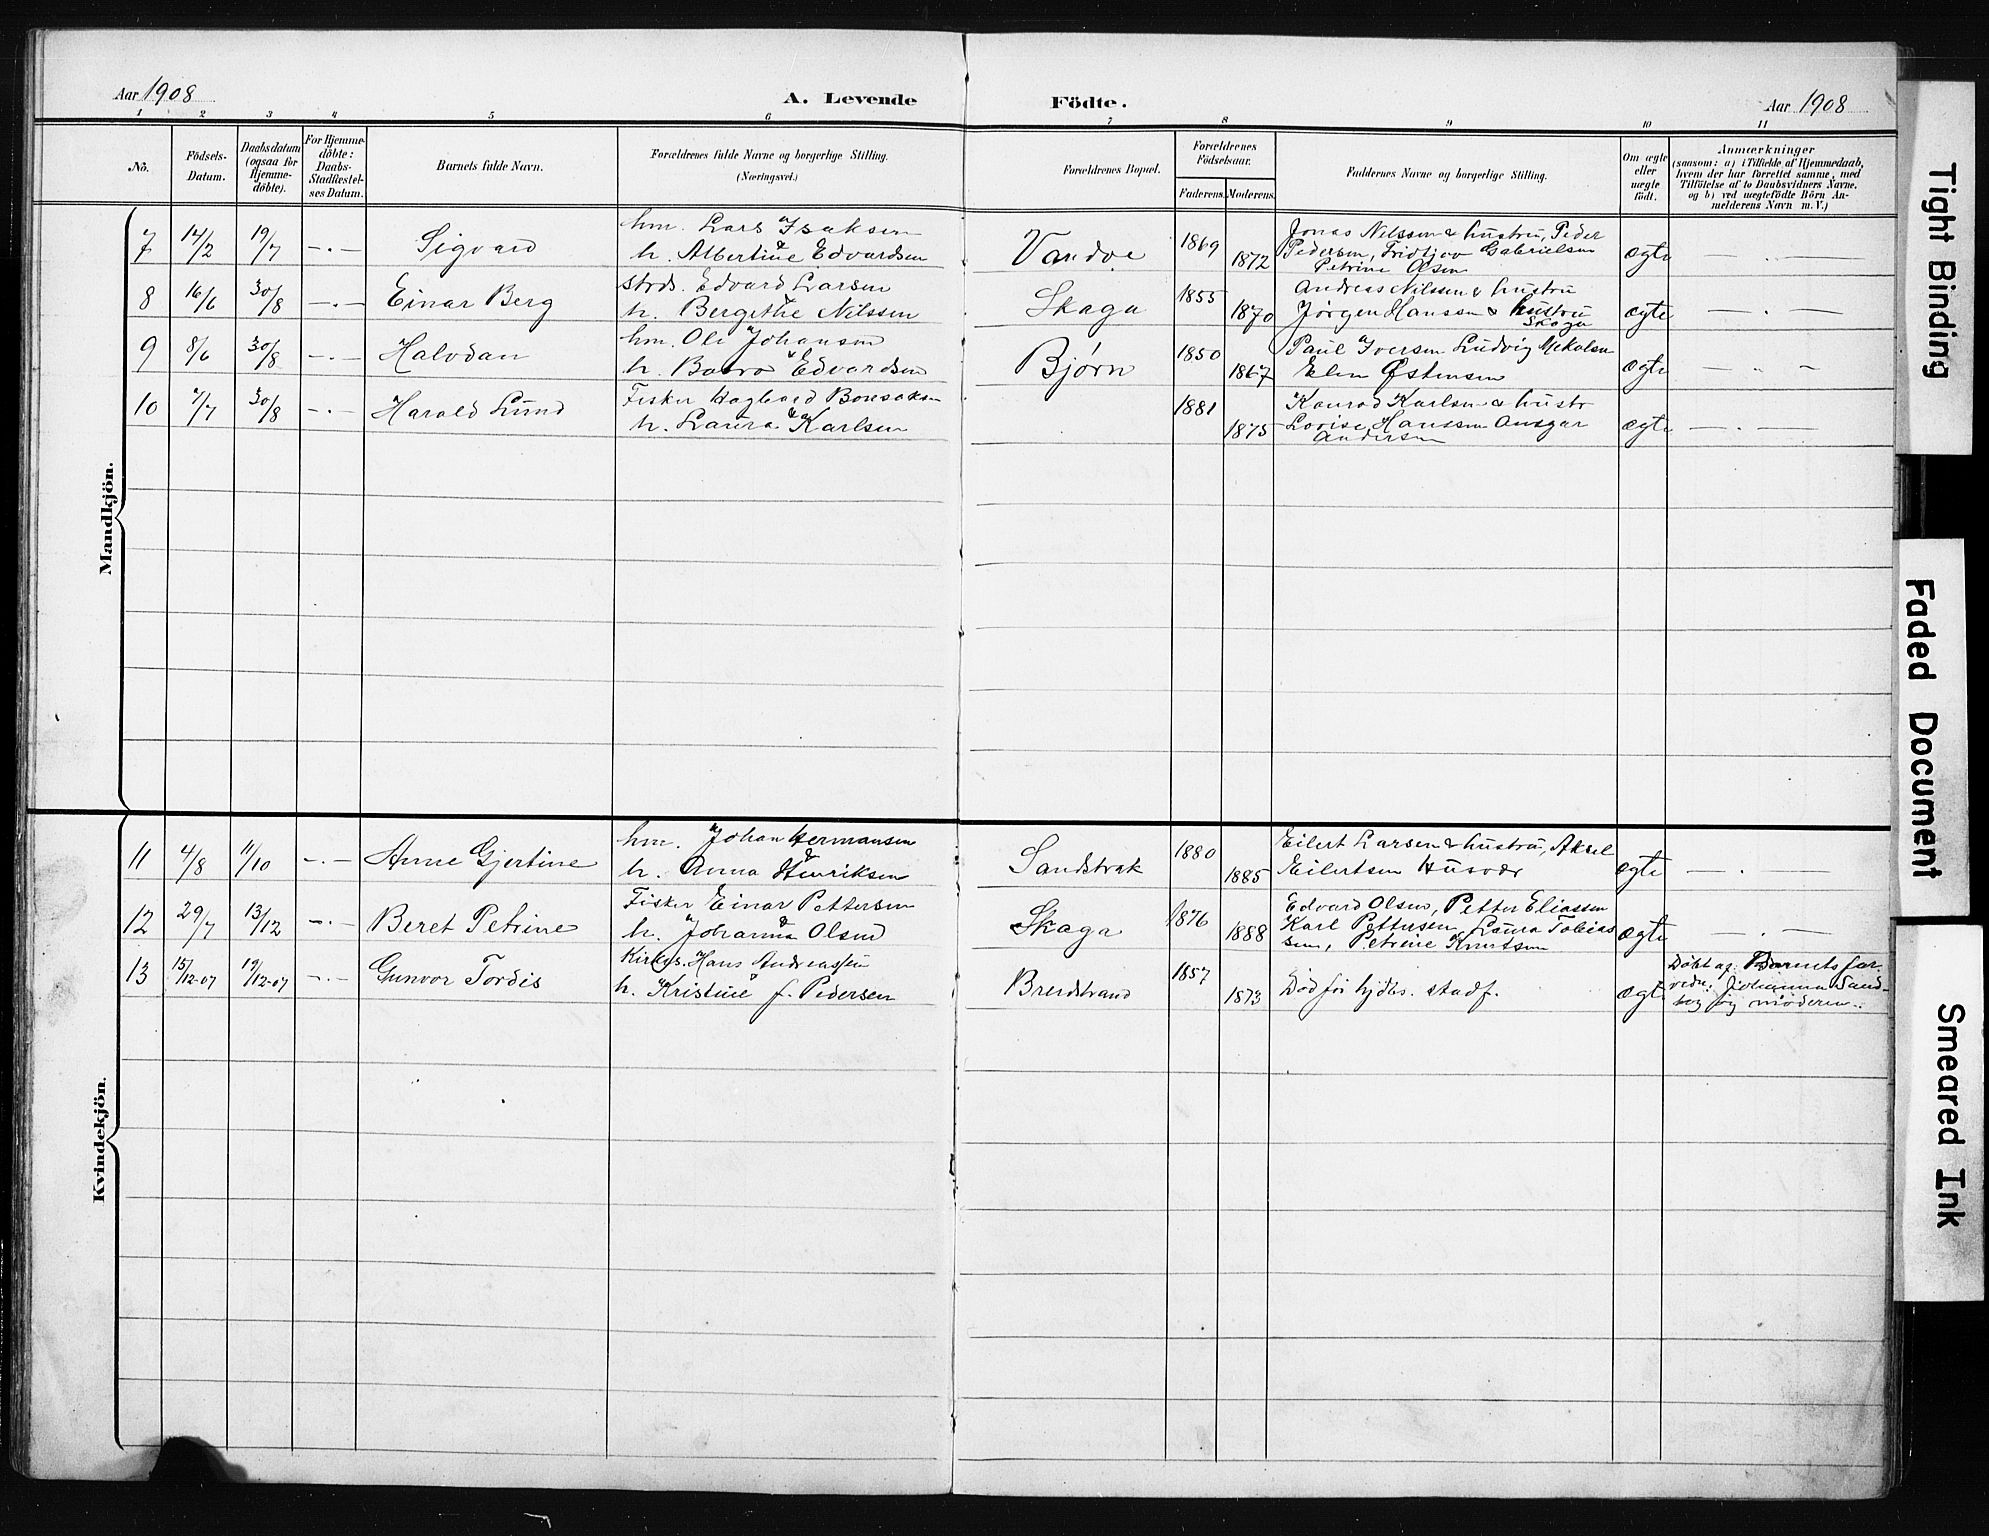 Aar 1908
A. Levende Födte.
Aar 1908
1 2 3 4 5 6 7 8 9 10 11
No.
Födsels-Datum.
Daabsdatum (ogsaa for Hjemme-döbte).
For Hjemme-döbte: Daabs-Stadfæstel-ses Datum.
Barnets fulde Navn.
Forældrenes fulde Navne og borgerlige Stilling.
(Næringsvei.)
Forældrenes Bopæl.
Forældrenes Födselsaar.
Faderens. Moderens.
Faddernes Navne og borgerlige Stilling.
Om ægte eller uægte födt.
Anmærkninger
(saasom: a) i Tilfælde af Hjemmedaab,
hvem der har forrettet samme, med
Tilföielse af to Daabsvidners Navne,
og b) ved uægtefödte Börn An-
melderens Navn m. V.)
Mandkjön.
7 14/2 19/7 -.- Sigvard
hm. Lars Isaksen
&
h. Albertine Edvardsen
Vandvе 1869 1872
Jonas Nilssen & hustru, Peder
Pedersen, Fridtjov Gabrielsen
Petrine Olsen
ægte — . —
8 16/6 30/8 -.- Einar Berg
strds. Edvard Larsen
&
h. Bergithe Nilssen
Skaga 1855 1870
Andreas Nilssen & hustru
Jørgen Hanssen & hustru
Skaga
ægte — . —
9 8/6 30/8 -.- Halvdan
hm. Ole Johansen
&
h. Edvardsen
Bjørn 1850 1867
Paul Iversen Ludvig Mikalsen
Elen Østensen
ægte — " —
10 7/7 30/8 -.- Harald Lund
Fisker Hagbard Bonsaksen
&
h. Laura Karlsen
1881 1875
Konrad Karlsen & hustr
Lovise Hanssen Ansgar
Andersen
ægte — . —
Kvindekjön.
11 4/8 11/10 -.- Anne Gjertine
hm. Johan Hermansen
&
h. Anna Henriksen
Sandstrak 1880 1885
Eilert Larsen & hustru, Aksel
Eilertsen Husvær
ægte — . —
12 29/7 13/12 -.- Beret Petrine
Fisker Einar Pettersen
&
h. Johanna Olsen
Skaga 1876 1888
Edvard Olsen, Petter Eliassen
Karl Pettersen, Laura Tobias
sen, Petrine Knutsen
ægte — . —
13 15/12-07 19/12-07 -.- Gunvor Tordis
Kirkes. Hans Andreassen
&
h. Kristine f. Pedersen
Breidstrand 1857 1873
Død før hjdbs. stadf.
ægte
Døbt af Barnets far.
vidn. Johanna Sand-
berg og moderen.
Tight Binding
Faded Document
Smeared Ink